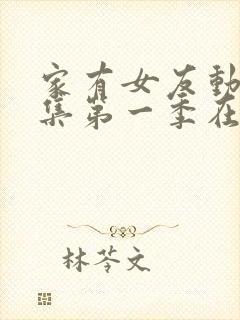 家有女友動
集第一季在
林苓文